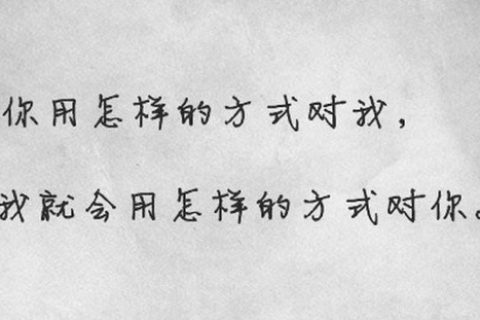 你用怎样的方式对我，
我就会用怎样的方式对你。